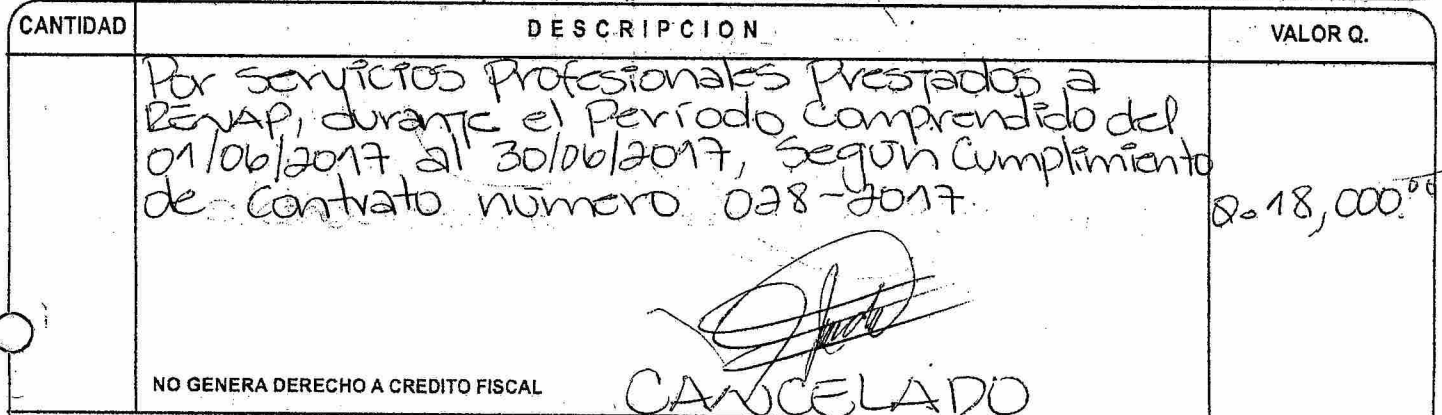 CANTIDAD DESCRIPCION VALOR Q.
Por Servicios Profesionales Prestados a
RENAP, durante el Período Comprendido del
01/06/2017 al 30/06/2017, Según Cumplimiento
de Contrato número 028-2017. Q. 18,000.00
NO GENERA DERECHO A CREDITO FISCAL CANCELADO